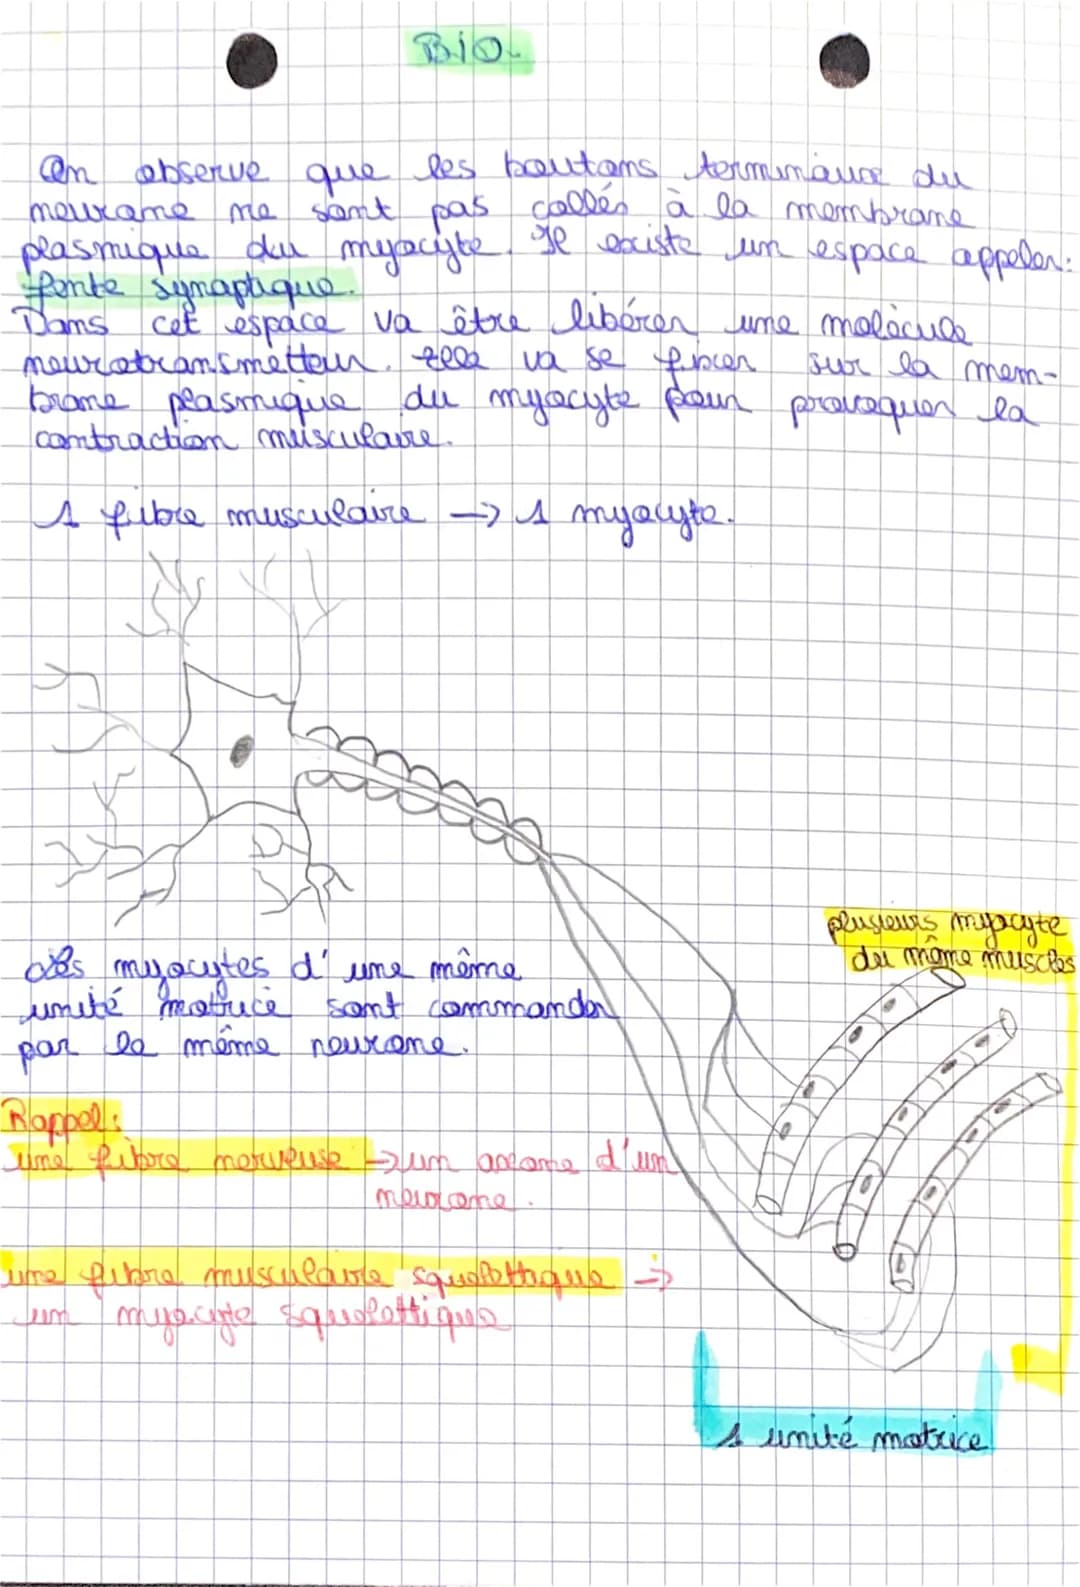 Bio
On observe que les boutons terminaux du
neurone ne sont pas collés à la membrane
plasmique du myocyte. Il existe un espace appeler:
fente synaptique.
Dans cet espace va être libérer une molécule
neurotransmetteur. Elle va se fixer sur la mem-
brane plasmique du myocyte pour provoquer la
contraction musculaire.
1 fibre musculaire → 1 myocyte.
plusieurs myocyte
du même muscles
des myocytes d'une même
unité motrice sont commander
par le même neurone.
Rappel:
une fibre nerveuse → un axone d'un
neurone.
une fibre musculaire squelettique →
un myocyte squelettique
1 unité motrice